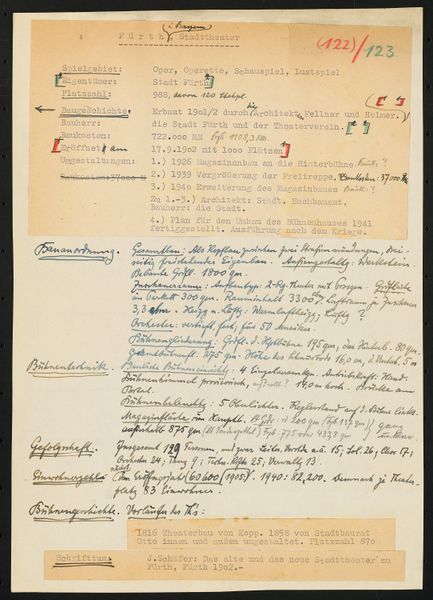 (i. Bayern)
Fürth, Stadttheater
(122)/123
Spielgebiet: Oper, Operette, Schauspiel, Lustspiel
Eigentümer: Stadt Fürth
Platzzahl: 988, davon 120 Stehpl.
Baugeschichte: Erbaut 1901/2 durch die Architekten Fellner und Helmer.
Bauherr: die Stadt Fürth und der Theaterverein.
Baukosten: 722.000 RM
Eröffnet am 17.9.1902 mit 1000 Plätzen
Umgestaltungen: 1.) 1926 Magazinanbau an die Hinterbühne. Bauk.?
Baukosten: 37000 2.) 1939 Vergrößerung der Freitreppe. Baukosten: 37000
3.) 1940 Erweiterung des Magazinbaues Bauk. ?
Zu 1.-3.) Architekt: Stadt. Hochbauamt.
Bauherr: die Stadt.
4.) Plan für den Umbau des Bühnenhauses 1941
fertiggestellt. Ausführung nach dem Kriege.
Bauanordnung. Gesamtbau: Als Kopfbau zwischen zwei Straßenmündungen, drei
seitig freistehender Eigenbau. - Außengestaltg: Werkstein.
Bebaute Grdfl. 1800 qm.
Zuschauerraum: Aufbautyp: 2-rg. Theater mit Proszen. Grdfläche
im Parkett 300 qm. Rauminhalt 3300 cbm, Luftraum je Zuschauer
3,3 cbm. Heizg u. Lüftg: Warmluftheizg; Lüftg ?
Orchester: versenkt, fest, für 50 Musiker.
Bühnengliederung: Grdfl. d. Hptbühne 195 qm, der Hinterb. 80 qm.
Gesamtbühnenfl. 275 qm. Höhe des Schnürbods 16,0 m, d. Unterb. 5 m
Bühnentechnik. Bauliche Bühneneinrichtg: 4 Einzelversenkgn. Antriebskraft: Hand.
Bühnenhimmel provisorisch, 14,0 m hoch. Brücke am
Portal.
Bühnenbeleuchtg: 5 Oberlichter. Reglerstand auf d. Bühne links.
Gefolgschaft. Insgesamt 129 Personen, und zwar Leitg, Vorstde u.a. 15; Sol. 26; Chor 17;
Orchester 24; Tanz 9; Techn. Kräfte 25, Verwaltg 13.
Einwohnerzahl im Eröffnungsjahr 60600 (1905). 1940: 82.200. Demnach je Theater-
platz 83 Einwohner.
Bühnengeschichte. Vorläufer des Ths:
1816 Theaterbau von Kopp. 1858 von Stadtbaurat
Otto innen und außen umgestaltet. Platzzahl 870
Schrifttum: J.Schäfer: Das alte und das neue Stadttheater zu
Fürth, Fürth 1902.-